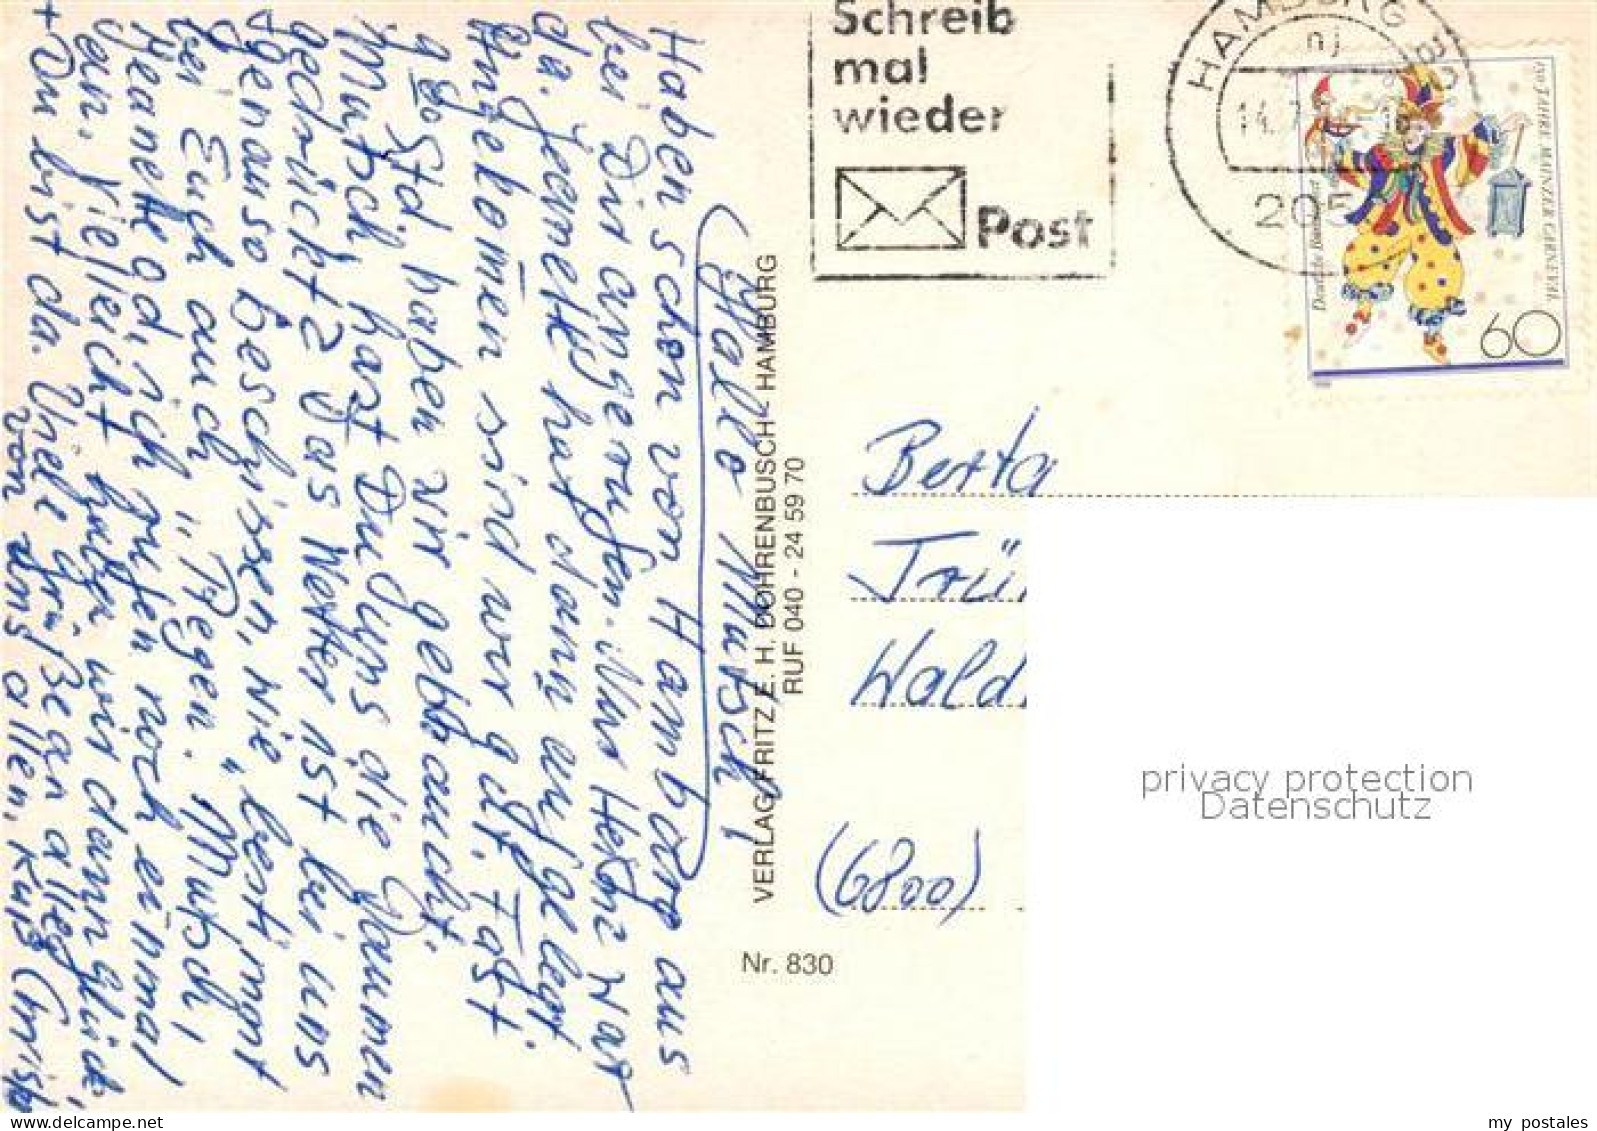 Hallo Mutsch,
Haben schon von Hamburg aus
bei Dir angerufen. Nur Heinz war
da. Jeanette hat dann aufgelegt
Angekomen sind wir gut. Fast
9 Std. haben wir gebraucht.
Mutsch, hast Du uns die Daumen
gedrückt? Das Wetter ist bei uns
genauso beschissen, wie bestimmt
bei Euch auch "Regen". Mutsch,
Jeanette + ich rufen noch einmal
an. Vielleicht haben wir dann Glück,
+ Du bist da. Viele Grüße an alle,
von uns allen, Kuß Christa
Schreib
mal
wieder
Post
HAMBURG
nj
14.7.
205
Deutsche Bundespost
150 JAHRE MAINZER CARNEVAL
60
VERLAG FRITZ E. H. DOHRENBUSCH - HAMBURG
RUF 040 - 24 59 70
Nr. 830
Berta
Trü
Wald
(6800)
privacy protection
Datenschutz
my postales